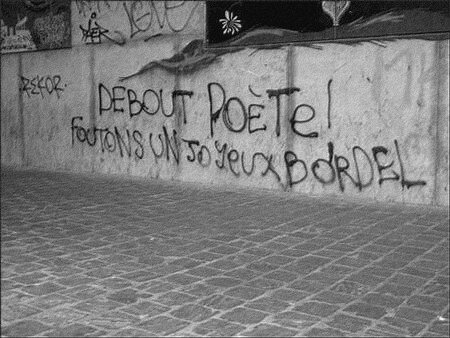 REKOR.
DEBOUT POÈTE!
FOUTONS UN JOYEUX BORDEL